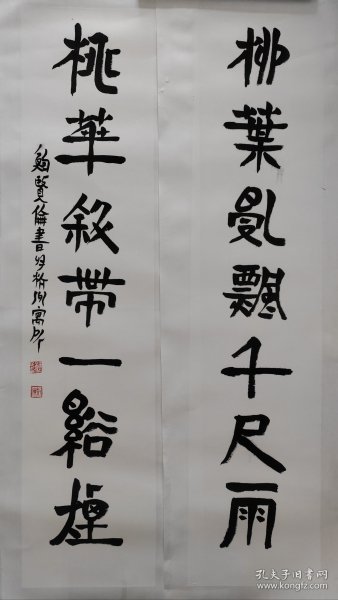 柳葉亂飄千尺雨
桃華斜帶一谿煙
鮑賢倫書於杭州寓所
孔夫子旧书网
www.kongfz.com